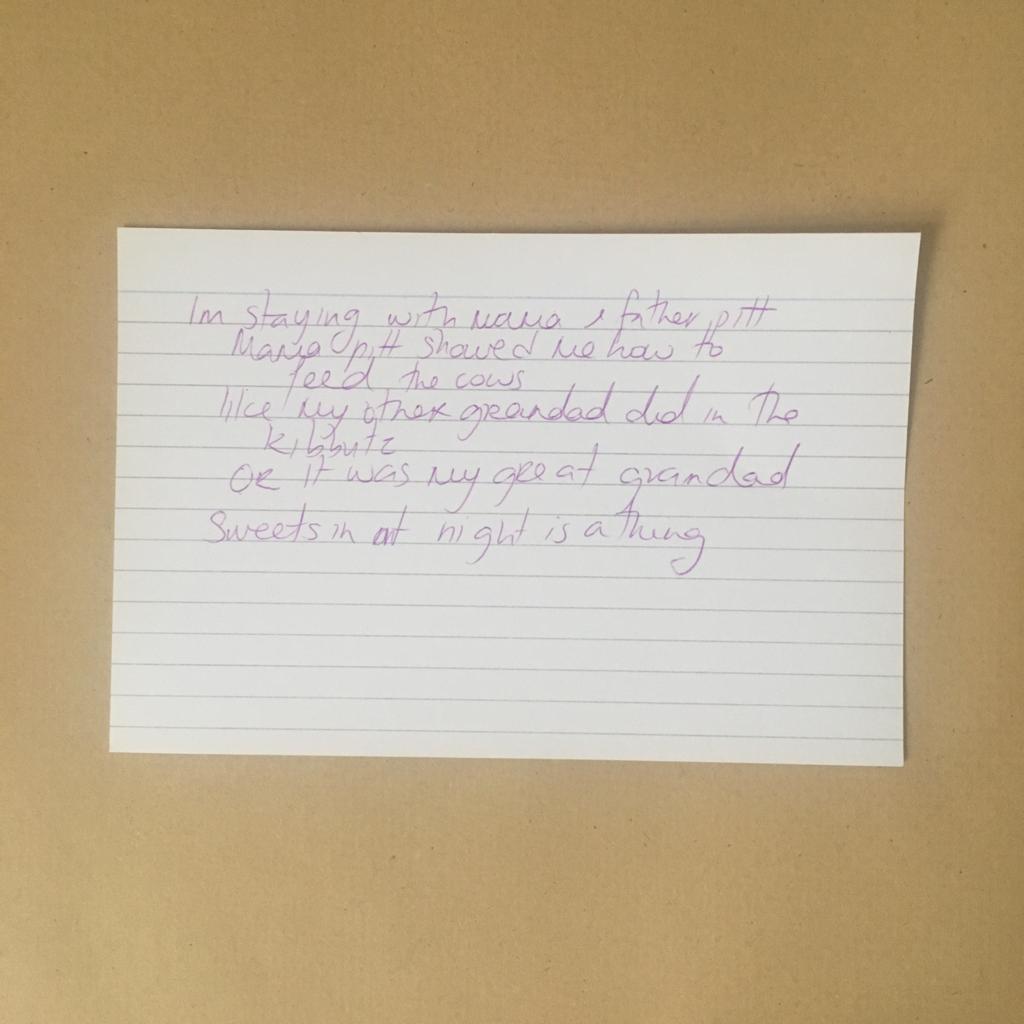 Im staying with mama & father pitt
Mama pitt showed me how to
feed the cows
like my other grandad did in the
kibbutz
OR it was my great grandad
Sweets in at night is a thing